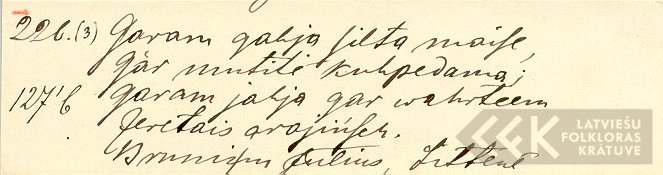 226. (3) Garam gahja silta maise,
Gar mutiti kuhpedama;
127'6 Garam jahja gar wahrteem
Zeretais arajinsch.
Julius, Littene
LATVIEŠU
FOLKLORAS
KRĀTUVE